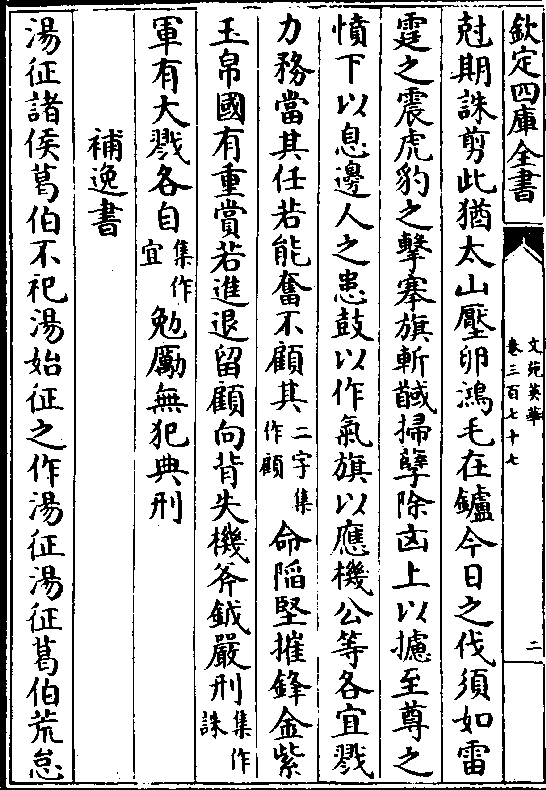 欽定四庫全書
文苑英華
卷三百七十七
二
尅期誅剪此猶太山壓卵鴻毛在鑪今日之伐須如雷
霆之震虎豹之擊搴旗斬馘掃孽除凶上以攄至尊之
憤下以息邊人之患鼓以作氣旗以應機公等各宜戮
力務當其任若能奮不顧其二字集作顧命陷堅摧鋒金紫
玉帛國有重賞若進退留顧向背失機斧鉞嚴刑集作誅
軍有大戮各自集作宜勉勵無犯典刑
補逸書
湯征諸侯葛伯不祀湯始征之作湯征湯征葛伯荒怠